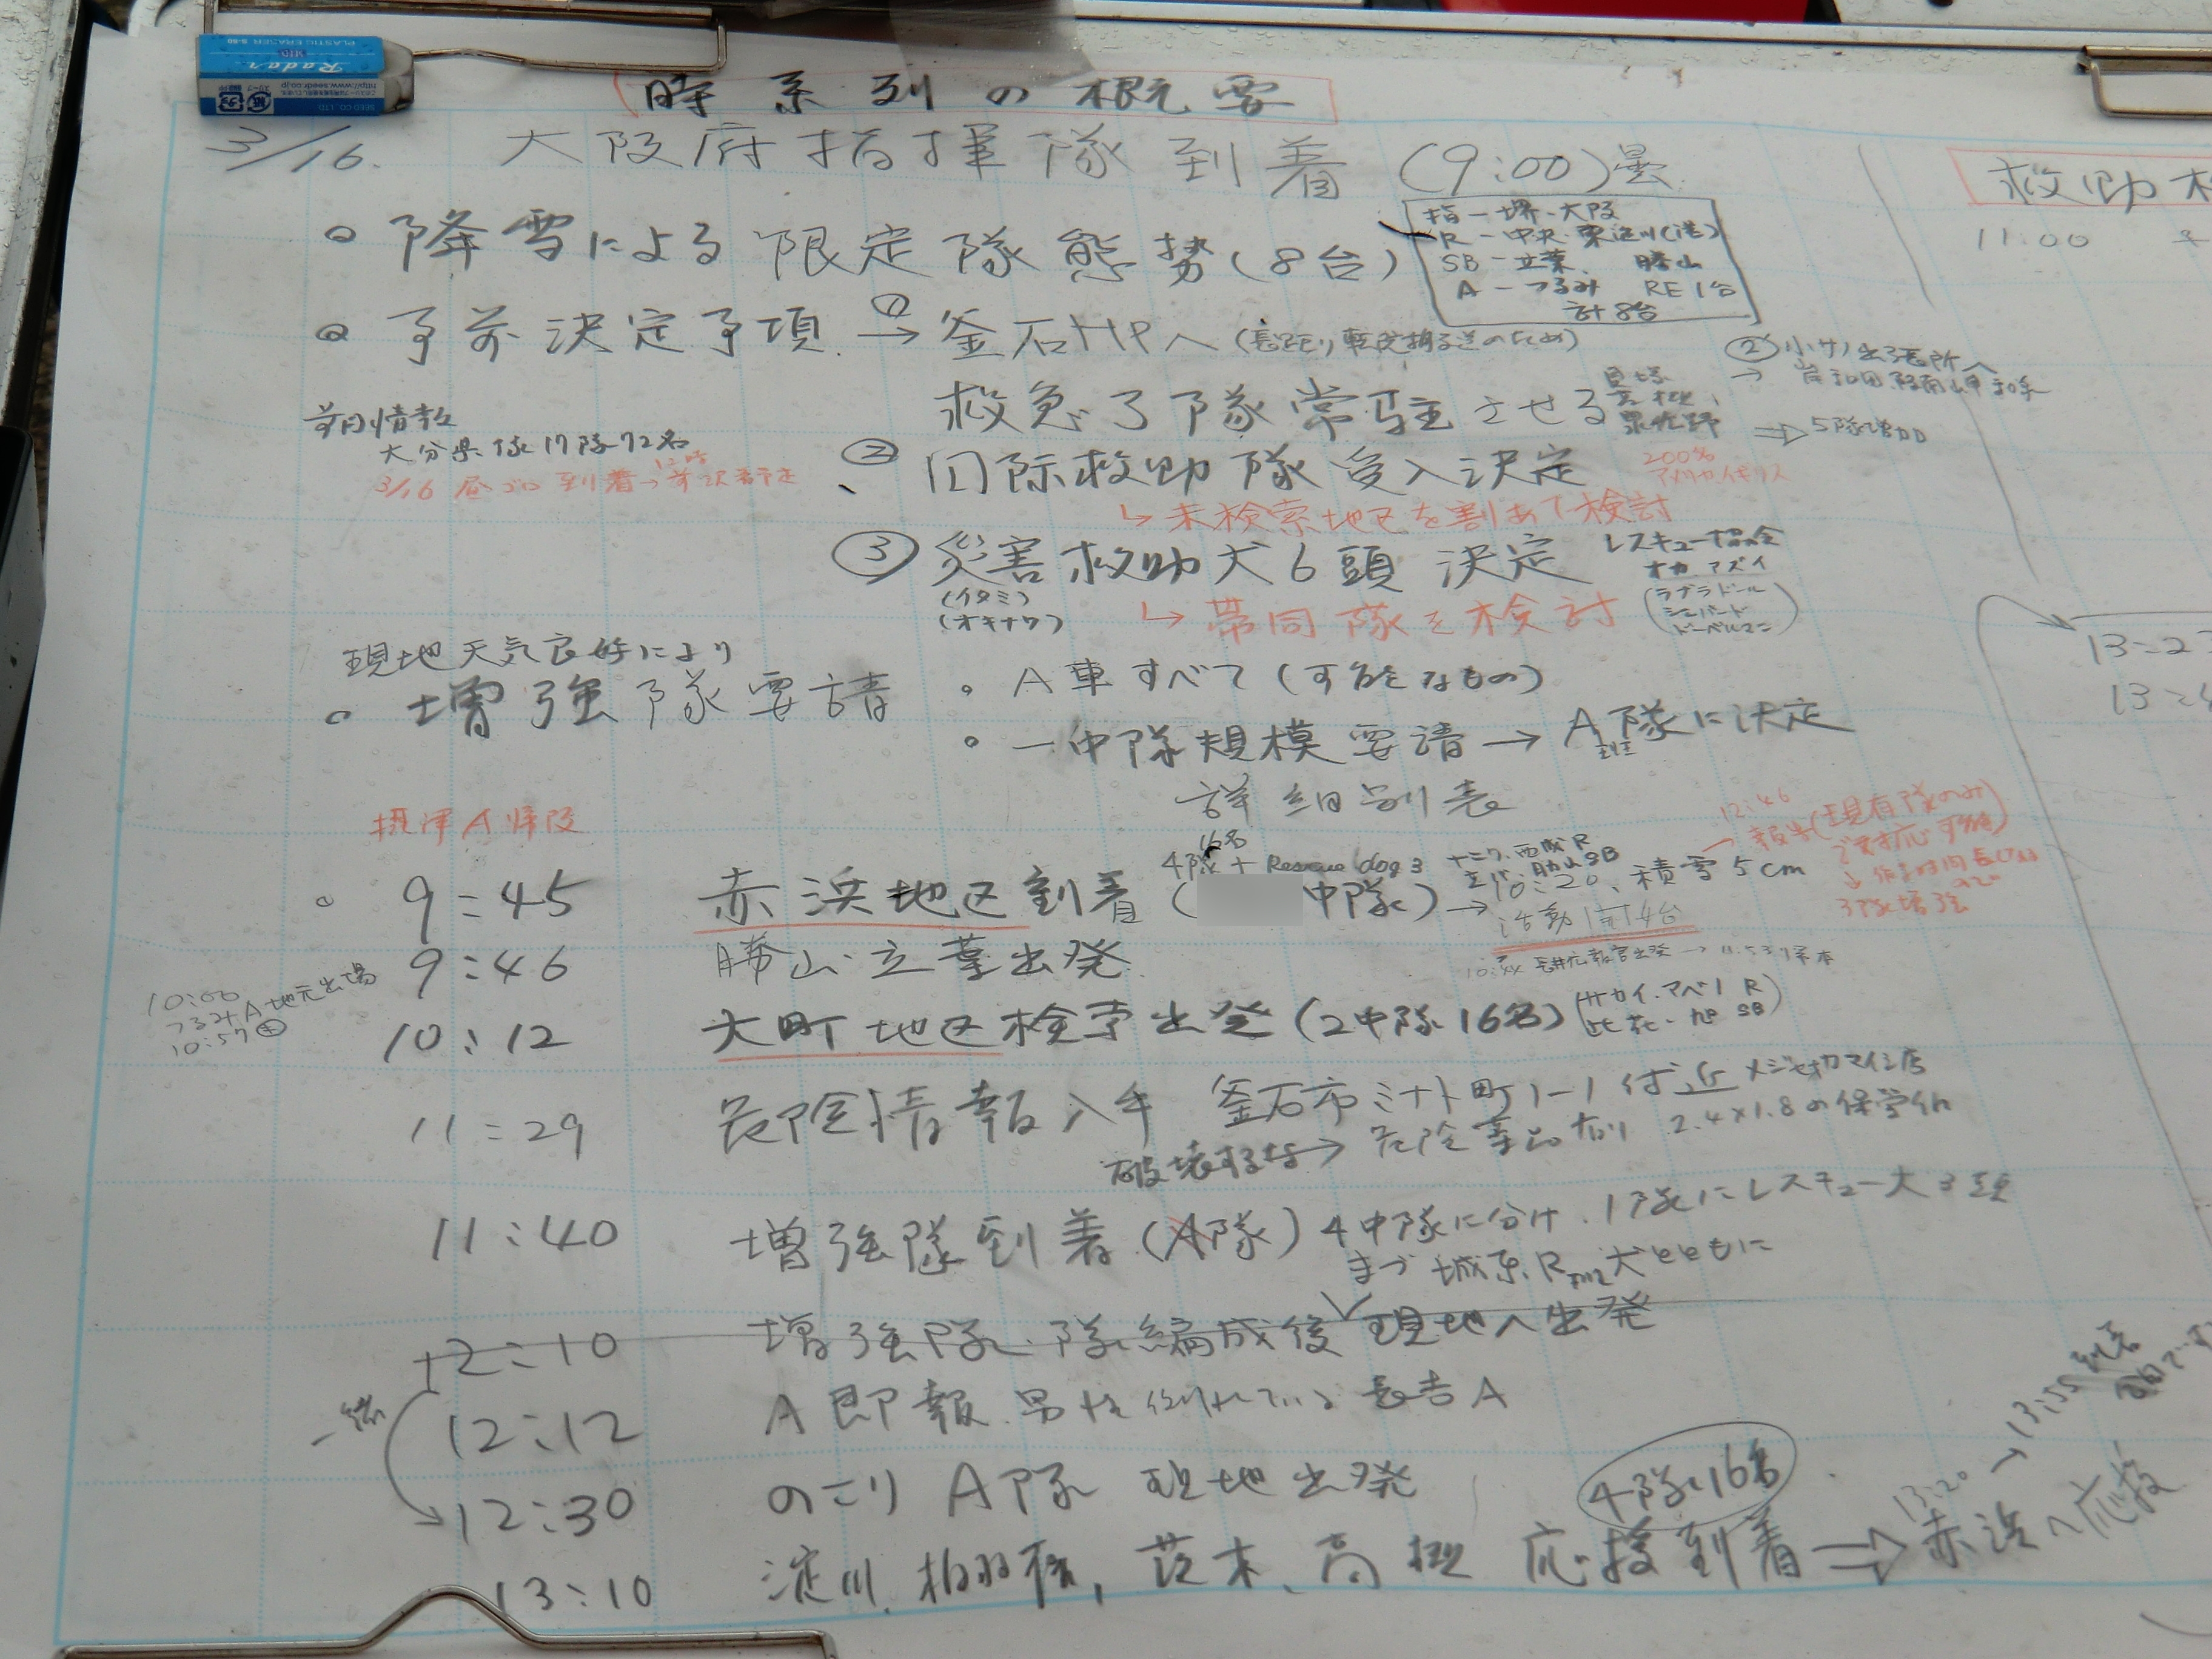 PLASTIC ERASER S-60
Radar
SEED CO.,LTD
http://www.seedr.co.jp
時系列の概要
3/16. 大阪府指揮隊到着 (9:00)曇
降雪による限定隊態勢(8台)
指-堺・大阪
R-中央・東淀川(港)
SB-立葉、勝山
A-つるみ RE 1台
計8台
予前決定予項 → ① 釜石HPへ (長距り転院搬送のため)
救急3隊常駐させる
貝塚
高槻、
泉佐野
② 小サノ出張所へ
→ 岸和田 阪南岬 和泉
⇒ 5隊増加
前日情報
大分県隊 17隊72名
3/16 昼ゴロ 到着→ 予定
② 国际救助隊受入決定
200%
アメリカ、イギリス
↳ 未検索地区を割あて検討
③ 災害救助犬6頭 決定
(イタミ)
(オキナワ)
レスキュー協会
オカ、アズイ
(ラブラドール
シェパード
ドーベルマン)
↳ 帯同隊を検討
現地天気良好により
増強隊要請
A車すべて(可能なもの)
一中隊規模要請 → A隊に決定
詳細別表
摂津A帰阪
16名
4隊 + Rescue dog 3
9:45 赤浜地区到着( 中隊) → 10:20、積雪5cm
活動計14台
12:46
→ 報告(現有隊のみ
で対応可能)
9:46 勝山・立葉出発
10:00
つるみA地元出場
10:57
10:12 大町地区検索出発(2中隊16名)
(サカイ、アベノ R
此花・旭 SB)
11:29 危険情報入手 釜石市ミナト町1-1付近
破壊するな→ 危険薬品有り 2.4×1.8の保管
11:40 増強隊到着(A隊) 4中隊に分け、1隊にレスキュー犬3頭
まづ城東R 犬とともに
12:10 増強隊・隊編成後 現地へ出発
一緒
12:12 A即報 男性倒れている 長吉A
12:30 のこり A隊 現地出発
4隊、16名
13:10 淀川、柏羽藤、茨木、高槻 応援到着 ⇒ 赤浜へ応援
13:20 → 13:55到着
救助
11:00
13:2